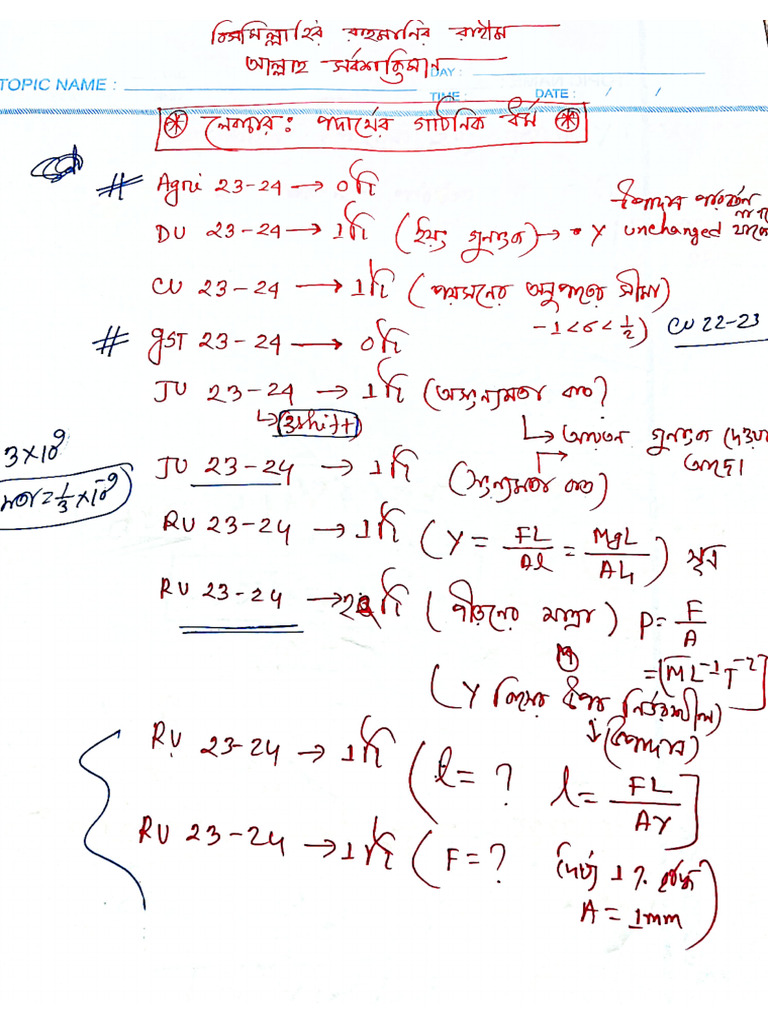 বিসমিল্লাহির রাহমানির রাহীম
আল্লাহ সর্বশক্তিমান
DAY :
TOPIC NAME :
TIME : DATE : / /
লেকচার: পদার্থের গাঠনিক ধর্ম
# Agri 23-24 → 0টি
DU 23-24 → 1টি (ইয়ং গুনাংক) → Y unchanged থাকে
উপাদান পরিবর্তন না হলে
CU 23-24 → 1টি (পয়সনের অনুপাতের সীমা)
-1<σ<1/2) CU 22-23
# GST 23-24 → 0টি
JU 23-24 → 1টি (অসংনম্যতা কত?
↳ 3shift ↳ আয়তন গুনাংক দেওয়া আছে।
3×10⁹
JU 23-24 → 1টি (সংনম্যতা কত)
= 1/3 ×10⁻⁹
RU 23-24 → 1টি (Y = FL/Al = MgL/Al) সূত্র
RU 23-24 → 2টি (পীড়নের মাত্রা) P = F/A
= [ML⁻¹T⁻²]
(Y কিসের উপর নির্ভরশীল)
↓ (উপাদান)
RU 23-24 → 1টি (l = ? l = FL/AY]
RU 23-24 → 1টি (F = ? দৈর্ঘ্য 1% বৃদ্ধি
A = 1mm)